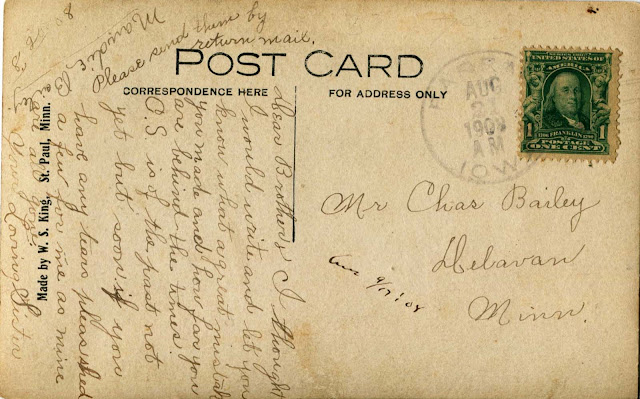 Please send them by
return mail.
POST CARD
CORRESPONDENCE HERE
FOR ADDRESS ONLY
Dear Brother, I thought
I would write and let you
know what a great mistake
you made and how far you
are behind the times
O.S. is of the past not
yet but soon if you
have any tears please shed
a few for me as mine
are all
Your Loving Sister
Maudie Bailey
Made by W. S. King, St. Paul, Minn.
AUG
1908
AM
IOWA
UNITED STATES OF
AMERICA
1 FRANKLIN 1
POSTAGE
ONE CENT
Mr Chas Bailey
Delavan
Minn.